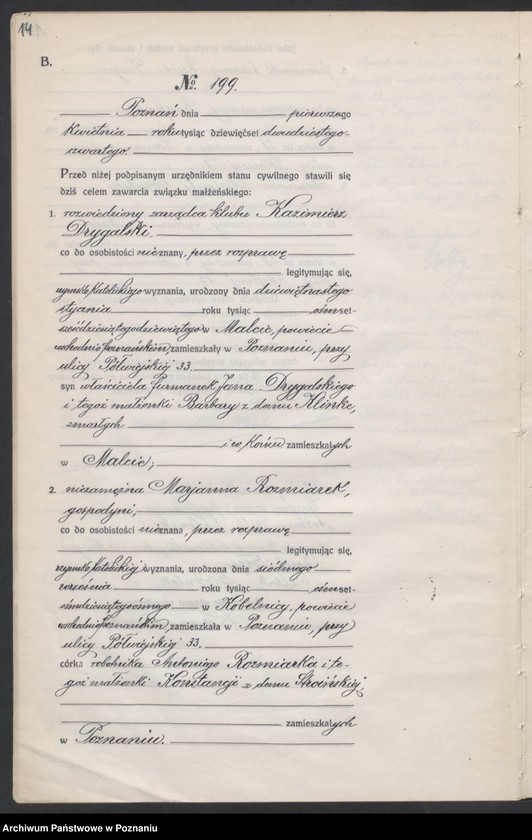 14
B.
№ 199.
Poznań dnia pierwszego
Kwietnia roku tysiąc dziewięćset dwudziestego-
czwartego.
Przed niżej podpisanym urzędnikiem stanu cywilnego stawili się
dziś celem zawarcia związku małżeńskiego:
1. rozwiedziony zarządca klubu Kazimierz
Drygalski,
co do osobistości nieznany, przez rozprawę
legitymując się,
rzymsko katolickiego wyznania, urodzony dnia dziewiętnastego
stycznia roku tysiąc ośmset-
sześćdziesiątego dziewiątego w Malcie, powiecie
wschodnio poznańskim, zamieszkały w Poznaniu, przy
ulicy Półwiejskiej 33.
syn właściciela furmanek Jana Drygalskiego
i tegoż małżonki Barbary z domu Klinke,
zmarłych
i w Końcu zamieszkałych
w Malcie;
2. niezamężna Marjanna Rozmiarek,
gospodyni,
co do osobistości nieznana, przez rozprawę
legitymując się,
rzymsko katolickiej wyznania, urodzona dnia siódmego
września roku tysiąc ośmset-
ośmdziesiątego ósmego w Kobelnicy, powiecie
wschodnio poznańskim, zamieszkała w Poznaniu, przy
ulicy Półwiejskiej 33.
córka robotnika Antoniego Rozmiarka i te-
goż małżonki Konstancji z domu
zamieszkałych
w Poznaniu.
Archiwum Państwowe w Poznaniu